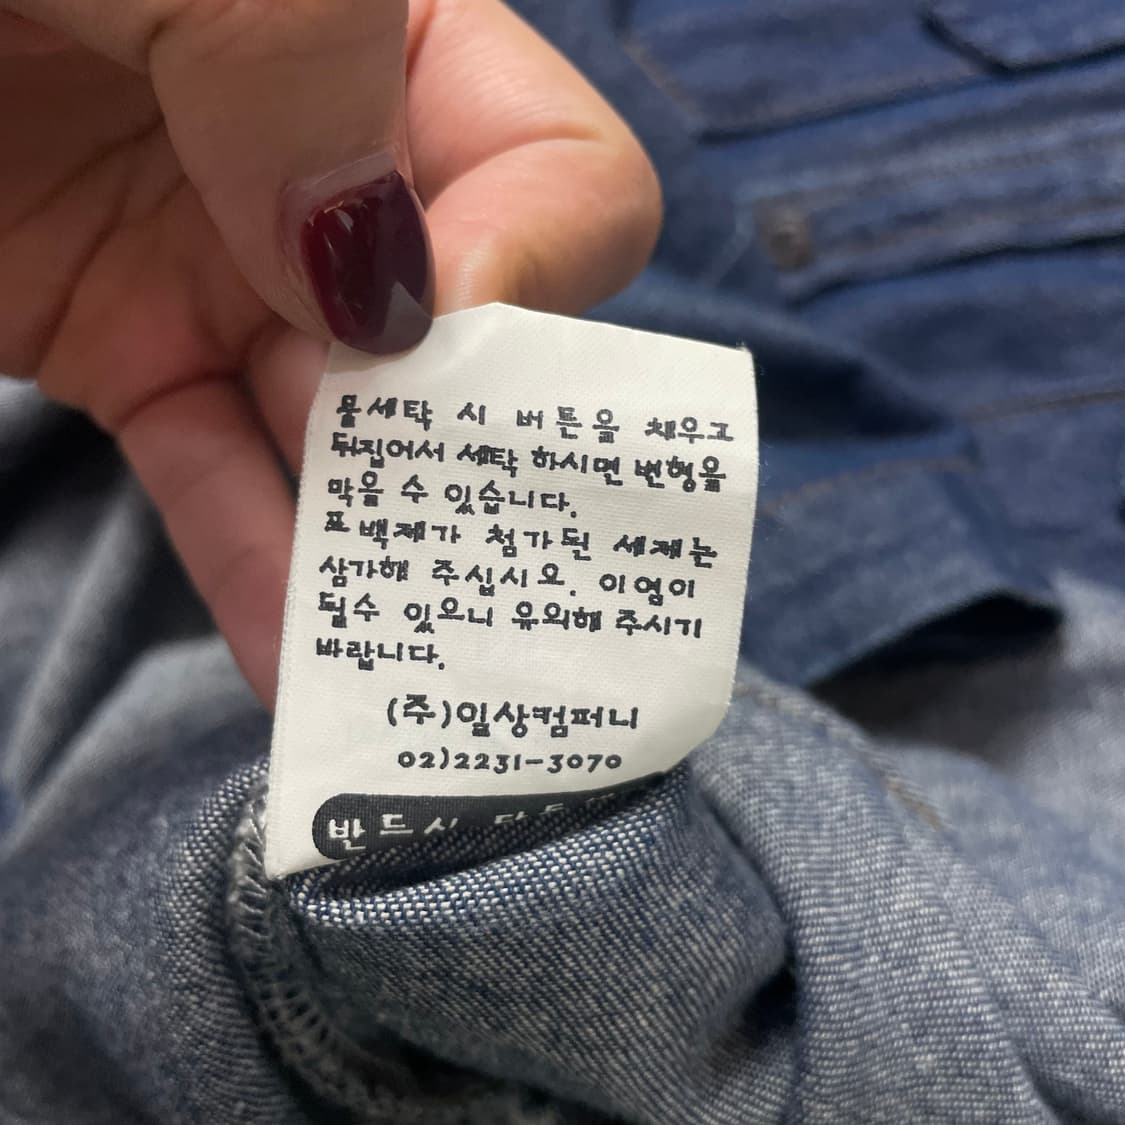 물세탁 시 버튼을 채우고
뒤집어서 세탁 하시면 변형을
막을 수 있습니다.
표백제가 첨가된 세제는
삼가해 주십시오. 이염이
될수 있으니 유의해 주시기
바랍니다.
(주)일상컴퍼니
02)2231-3070
반드시